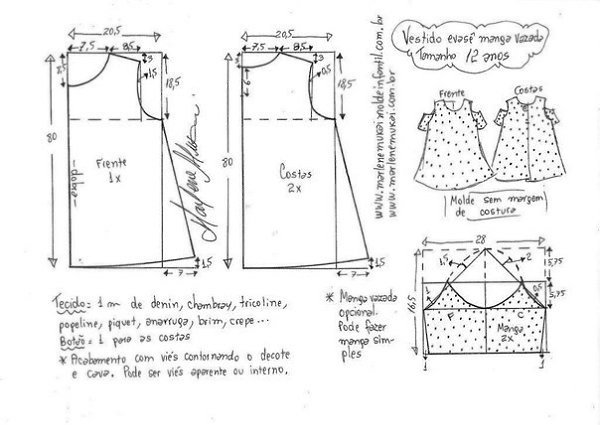 Vestido evasê manga vazada
Tamanho 12 anos
20,5
7,5
8,5
3
8,5
1,5
18,5
80
Frente
1x
dobra
1,5
7
Marlene Mukai
20,5
7,5
8,5
3
3
6
0,5
18,5
80
Costas
2x
1,5
7
www.marlenemukaimoldeinfantil.com.br
www.marlenemukai.com.br
Frente
Costas
Molde sem margem
de costura
28
1,5
2
5,75
0,5
5,75
16,5
F
C
Manga
2x
1
1
Tecido= 1 m de denin, chambray, tricoline,
popeline, piquet, anarruga, brim, crepe...
Botão= 1 para as costas
* Acabamento com viés contornando o decote
e cava. Pode ser viés aparente ou interno.
* Manga vazada
opcional.
Pode fazer
manga sim-
ples